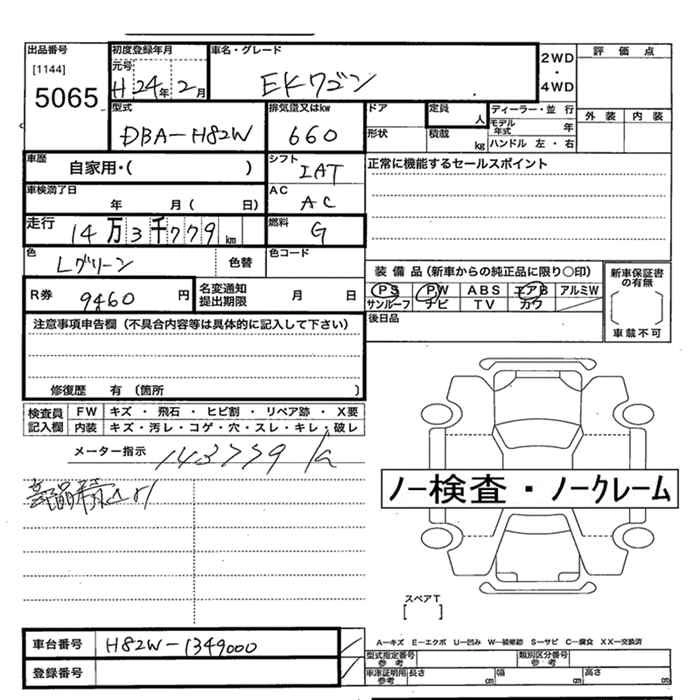 出品番号
[1144]
5065
初度登録年月
元号
H 24年 2月
車名・グレード
EKワゴン
2WD
・
4WD
評価点
外装 内装
型式
DBA-H82W
排気量又はkw
660
ドア
形状
定員
人
積載
kg
ディーラー・並行
モデル年式 年
ハンドル 左・右
車歴
自家用・( )
シフト
IAT
正常に機能するセールスポイント
車検満了日
年 月( 日)
AC
AC
走行
14万3千779km
燃料
G
色
Lグリーン
色替
色コード
R券
9460円
名変通知
提出期限
月 日
装備品(新車からの純正品に限り○印)
PS PW ABS エアB アルミW
サンルーフ ナビ TV カワ
新車保証書
の有無
車載不可
後日品
注意事項申告欄(不具合内容等は具体的に記入して下さい)
修復歴 有(箇所 )
検査員
記入欄
FW キズ・飛石・ヒビ割・リペア跡・X要
内装 キズ・汚レ・コゲ・穴・スレ・キレ・破レ
メーター指示
143779 k
ノー検査・ノークレーム
スペアT
[ ]
車台番号
H82W-1349000
登録番号
A−キズ E−エクボ U−凹み W−装補跡 S−サビ C−腐食 XX−交換済
型式指定番号
参考
類別区分番号
参考
車庫証明用
参考
長さ cm 幅 cm 高さ cm